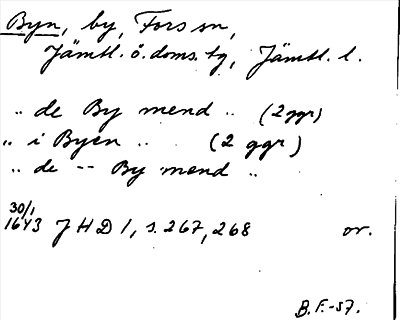 Byn, by, Fors sn,
Jämtl. ö. doms. tg, Jämtl. l.
.. de By mend .. (2 ggr)
.. i Byen .. (2 ggr)
.. de -- By mend ..
30/1
1643 JHD 1, s. 267, 268 or.
B.F.-57.